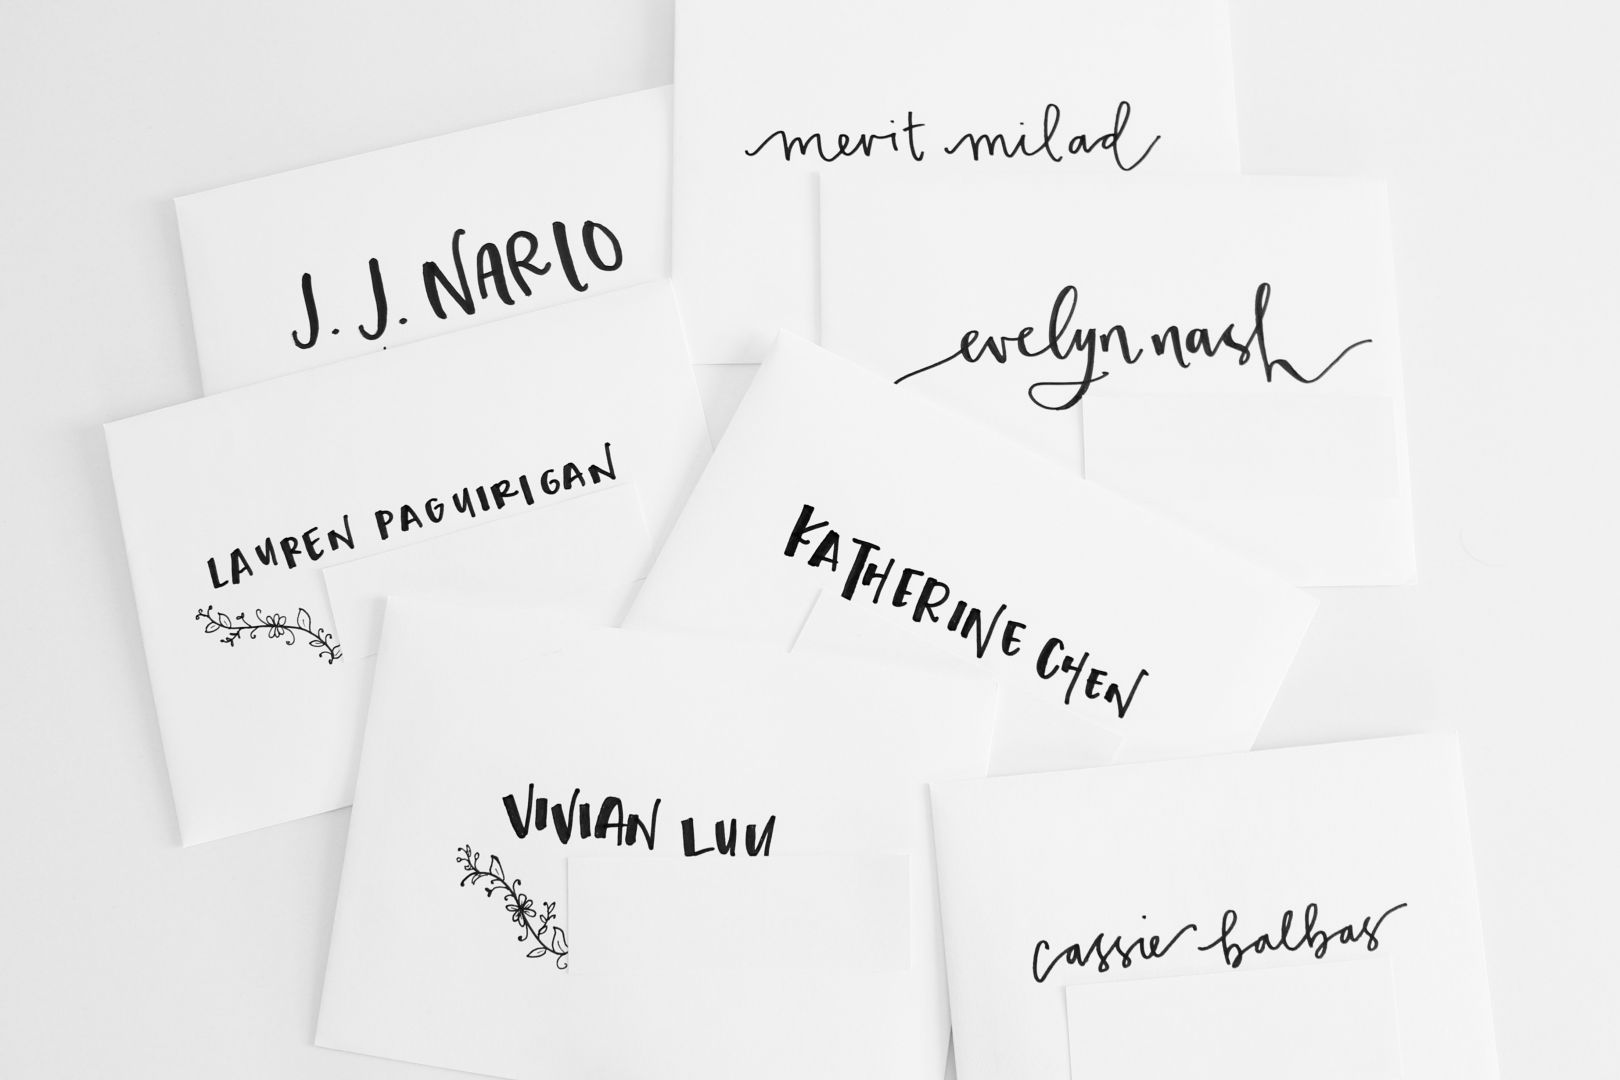 merit milad
J. J. NARIO
evelyn nash
LAUREN PAGUIRIGAN
KATHERINE CHEN
VIVIAN LUU
cassie balbas